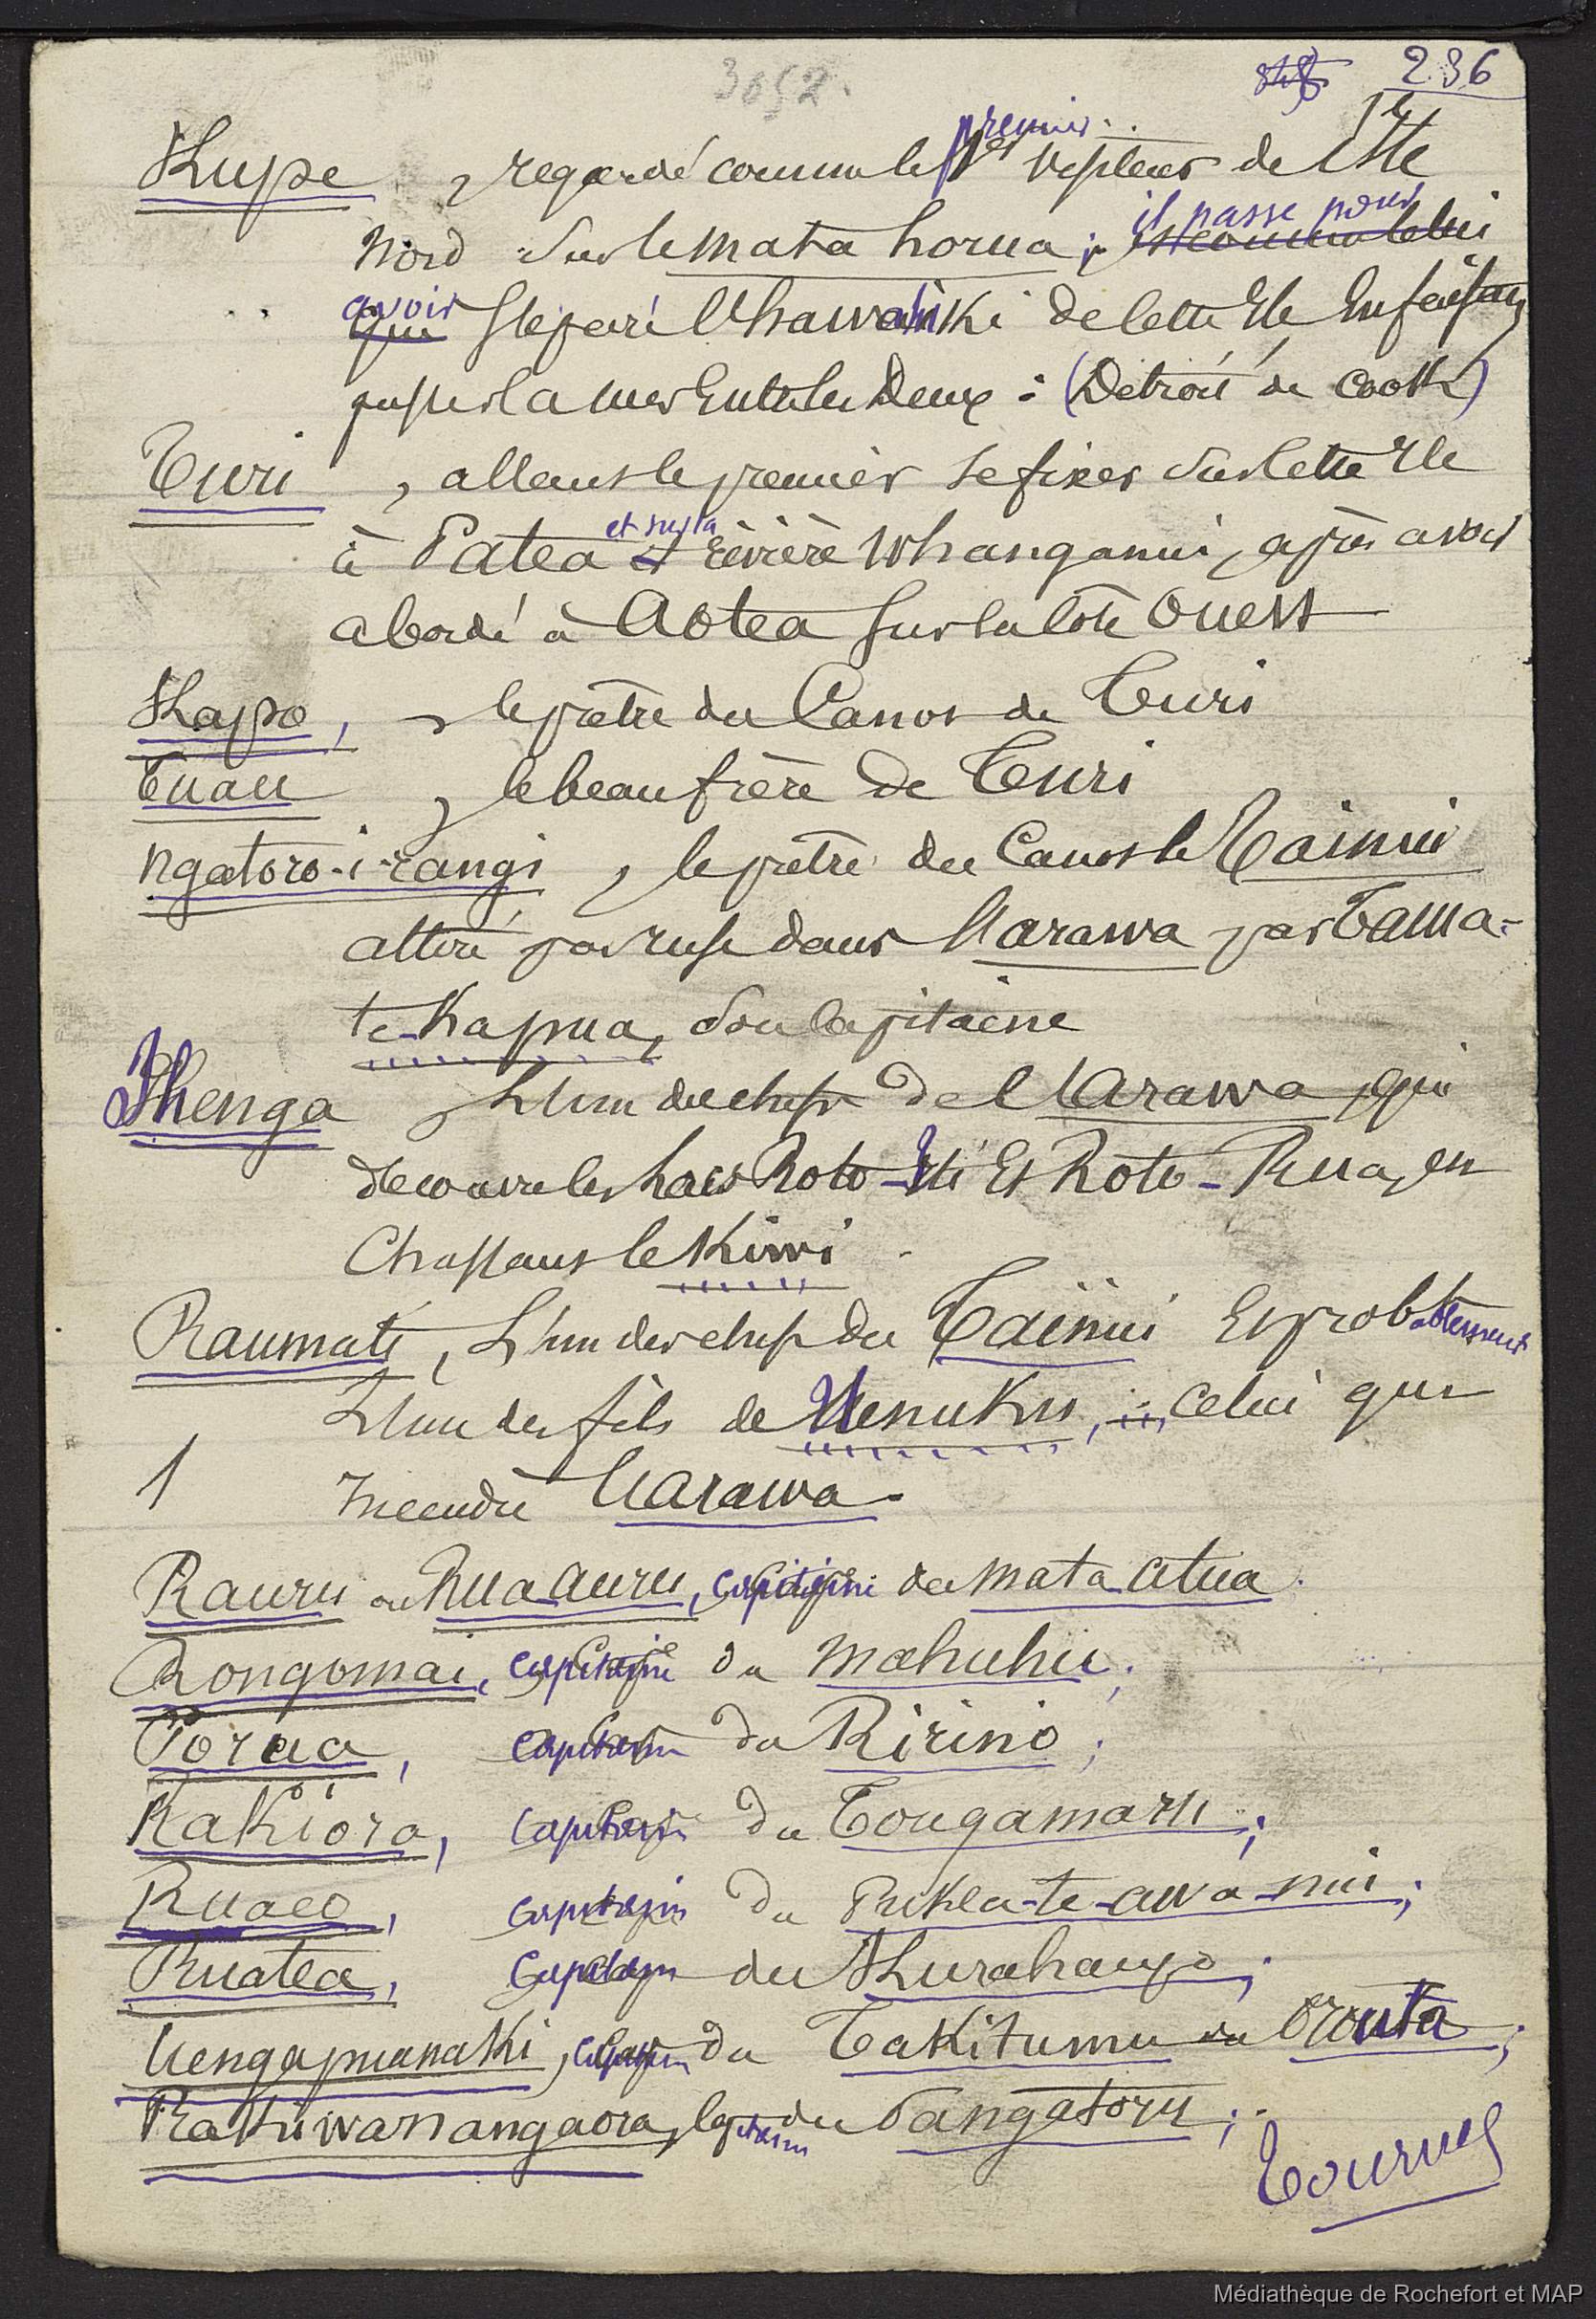 3052.
236
Kupe, regardé comme le premier visiteur de l'Ile
Nord sur le mata horua; il passe pour
avoir séparé l'hawahiki de cette Ile en faisant
passer la mer Entre les Deux : (Détroit de Cook)
Turi, allant le premier se fixer sur cette Ile
à Patea et sur la rivière Whanganui, après avoir
abordé à Aotea sur la côte Ouest
Kapo, le prêtre du Canot de Turi
Tuau, le beau frère de Turi
Ngatoro-i-rangi, le prêtre du Canot le Tainui
attiré par ruse dans l'Arawa par Tama-
te-Kapua, son Capitaine
Ihenga, L'un des chefs de l'Arawa, qui
découvre les lacs Roto-Iti Et Roto-Rua, en
Chassant le Kiwi.
Raumati, L'un des chefs du Tainui Et probablement
L'un des fils de Uenuku, celui qui
1 Incendie l'Arawa.
Rauru ou Rua auru, capitaine du mata-atua.
Rongomai, capitaine du Mahuhu;
Porua, capitaine du Ririno;
Rakiora, capitaine du Tongamaru;
Ruaeo, capitaine du Pukea-te-awa-nui;
Ruatea, capitaine du Kurahaupo;
Uengapuanaki, capitaine du Takitumu ou Orouta;
Rakiiwanangaora, capitaine du Pangatoru;
Tournez
Médiathèque de Rochefort et MAP